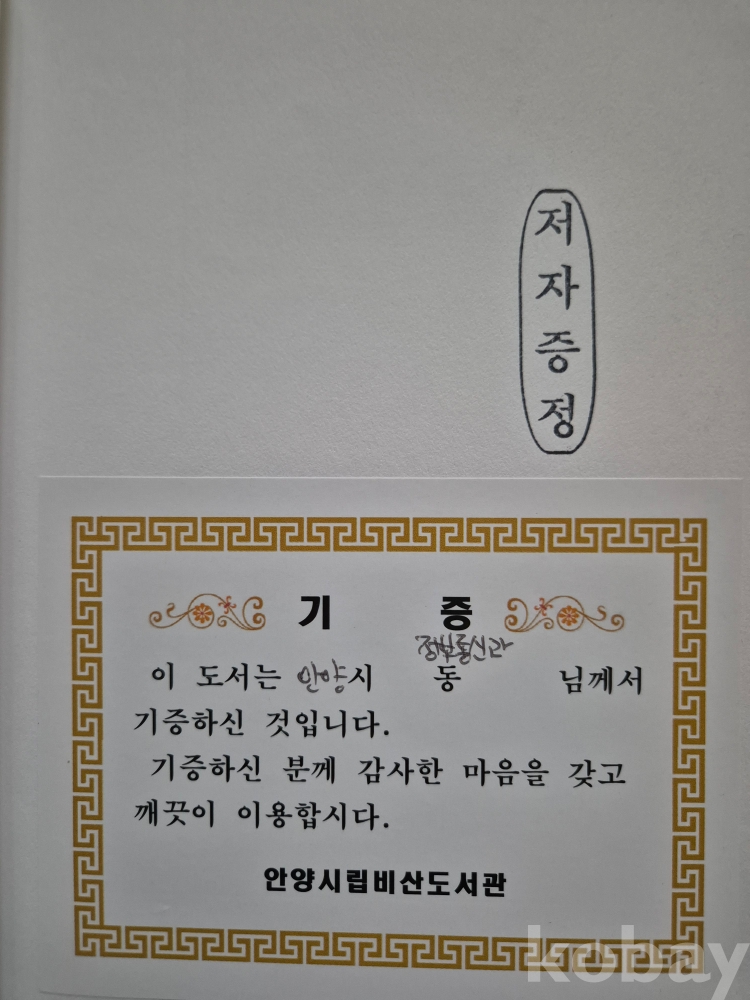 저자증정
기 증
정보통신과
이 도서는 안양시 동 님께서
기증하신 것입니다.
기증하신 분께 감사한 마음을 갖고
깨끗이 이용합시다.
안양시립비산도서관
kobay